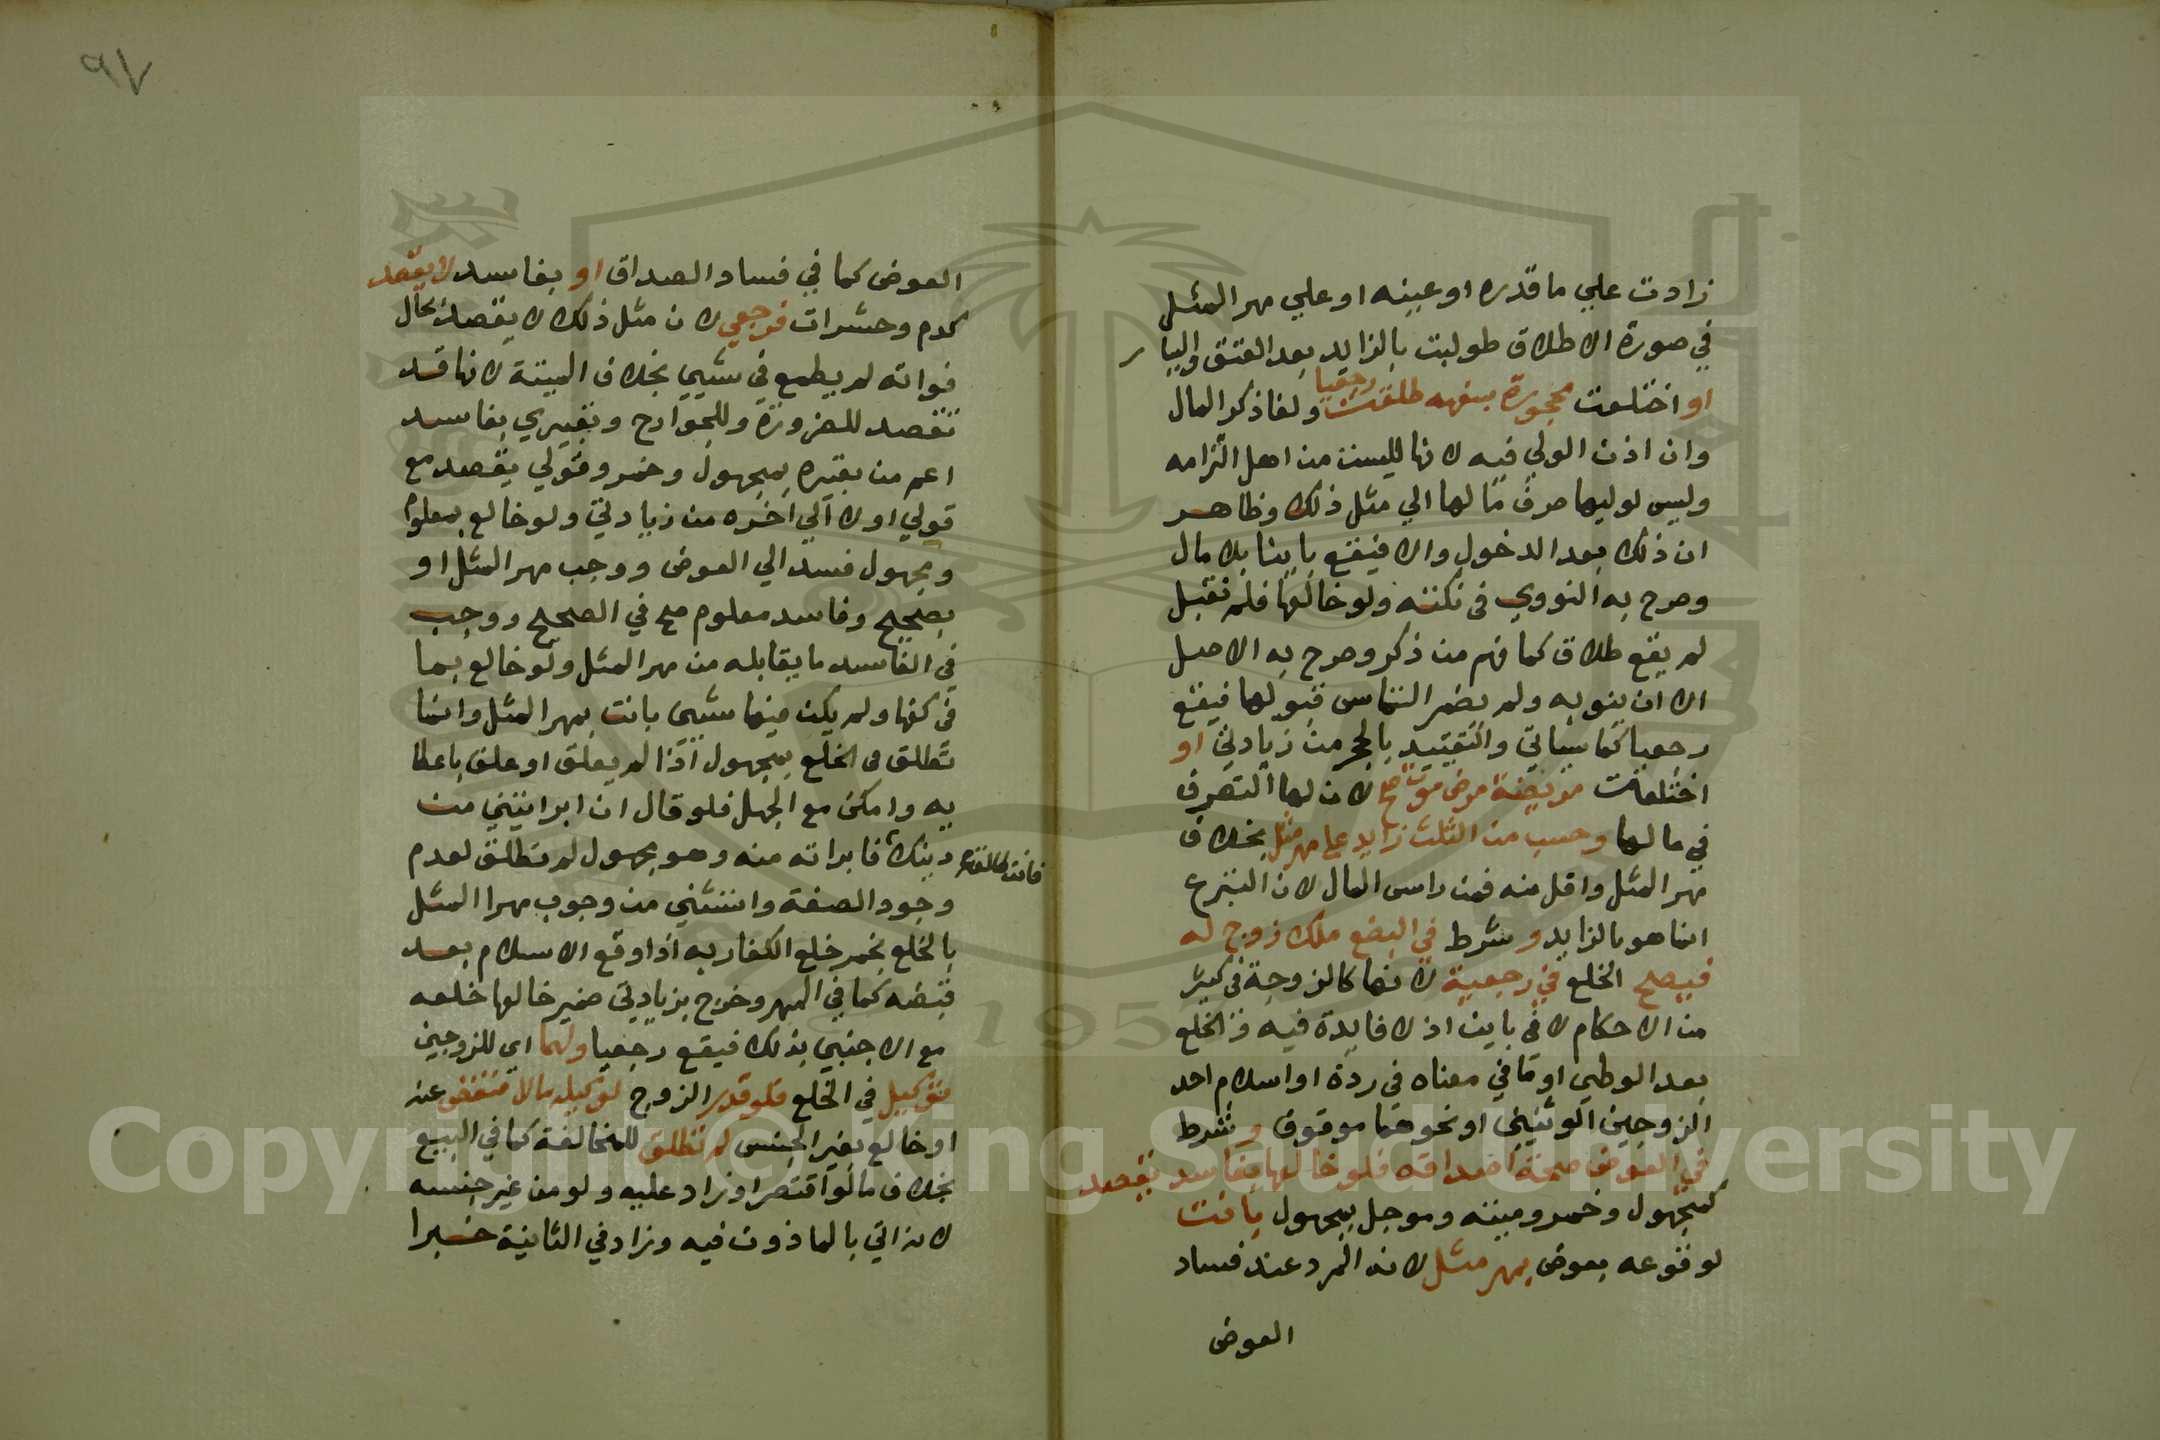 زادت علي ما قدره او عينه او علي مهر المثل
في صورة الاطلاق طولبت بالزايد بعد العتق واليسار
او اختلعت محجورة بسفه طلقت رجعيا ولغا ذكر المال
وان اذن الولي فيه لانها ليست من اهل التزامه
وليس لوليها صرف مالها الي مثل ذلك وظاهر
ان ذلك بعد الدخول والا فيقع باينا بلا مال
وصرح به النووي في نكتته ولو خالعها فلم تقبل
لم يقع طلاق كما فهم من ذكر وصرح به الاصل
الا ان ينويه ولم يضمر التماس قبولها فيقع
رجعيا كما سياتي والتقييد بالحجر من زيادتي او
اختلعت مريضة مرض موت صح لان لها التصرف
في مالها وحسب من الثلث زايد علي مهر مثل بخلاف
مهر المثل واقل منه فمن راس المال لان التبرع
انما هو بالزايد وشرط في البضع ملك زوج له
فيصح الخلع في رجعية لانها كالزوجة في كثير
من الاحكام لا في باين اذ لا فايدة فيه والخلع
بعد الوطي او ما في معناه في ردة او اسلام احد
الزوجين الوثنيين او نحوهما موقوف وشرط
في العوض صحة اصداقه فلو خالعها بفاسد يقصد
كمجهول وخمر وميتة وموجل بمجهول بانت
لوقوعه بعوض بمهر مثل لانه المرد عند فساد
العوض
٩٧
العوض كما في فساد الصداق او بفاسد لا يقصد
كدم وحشرات فرجعي لان مثل ذلك لا يقصد بحال
فوانه لم يطمع في شيي بخلاف الميتة لانها قد
تقصد للضرورة وللجوارح وتعبيري بفاسد
اعم من تعبيره بمجهول وخمر وقولي يقصد مع
قولي او لا الي اخره من زيادتي ولو خالع بمعلوم
ومجهول فسد الي العوض ووجب مهر المثل او
بصحيح وفاسد معلوم صح في الصحيح ووجب
في الفاسد ما يقابله من مهر المثل ولو خالع بما
في كفها ولم يكن فيها شيي بانت بمهر المثل وانما
تطلق في الخلع بمجهول اذا لم يعلق او علق باعطا
يه وامكن مع الجهل فلو قال ان ابراتيني من
دينك فانت طالق فابراته منه وهو مجهول لم تطلق لعدم
وجود الصفة واستثني من وجوب مهر المثل
بالخلع بخمر خلع الكفار به اذا وقع الاسلام بعد
قبضه كما في المهر وخرج بزيادتي ضمير خالعها خلعه
مع الاجنبي بذلك فيقع رجعيا ولهما اي للزوجين
توكيل في الخلع فلو قدر الزوج لوكيله مالا فنقص عنه
او خالع بغير الجنس لم تطلق للمخالفة كما في البيع
بخلاف ما لو اقتصر او زاد عليه ولو من غير جنسه
لانه اتي بالماذون فيه وزاد في الثانية خيرا
Copyright © King Saud University
1957